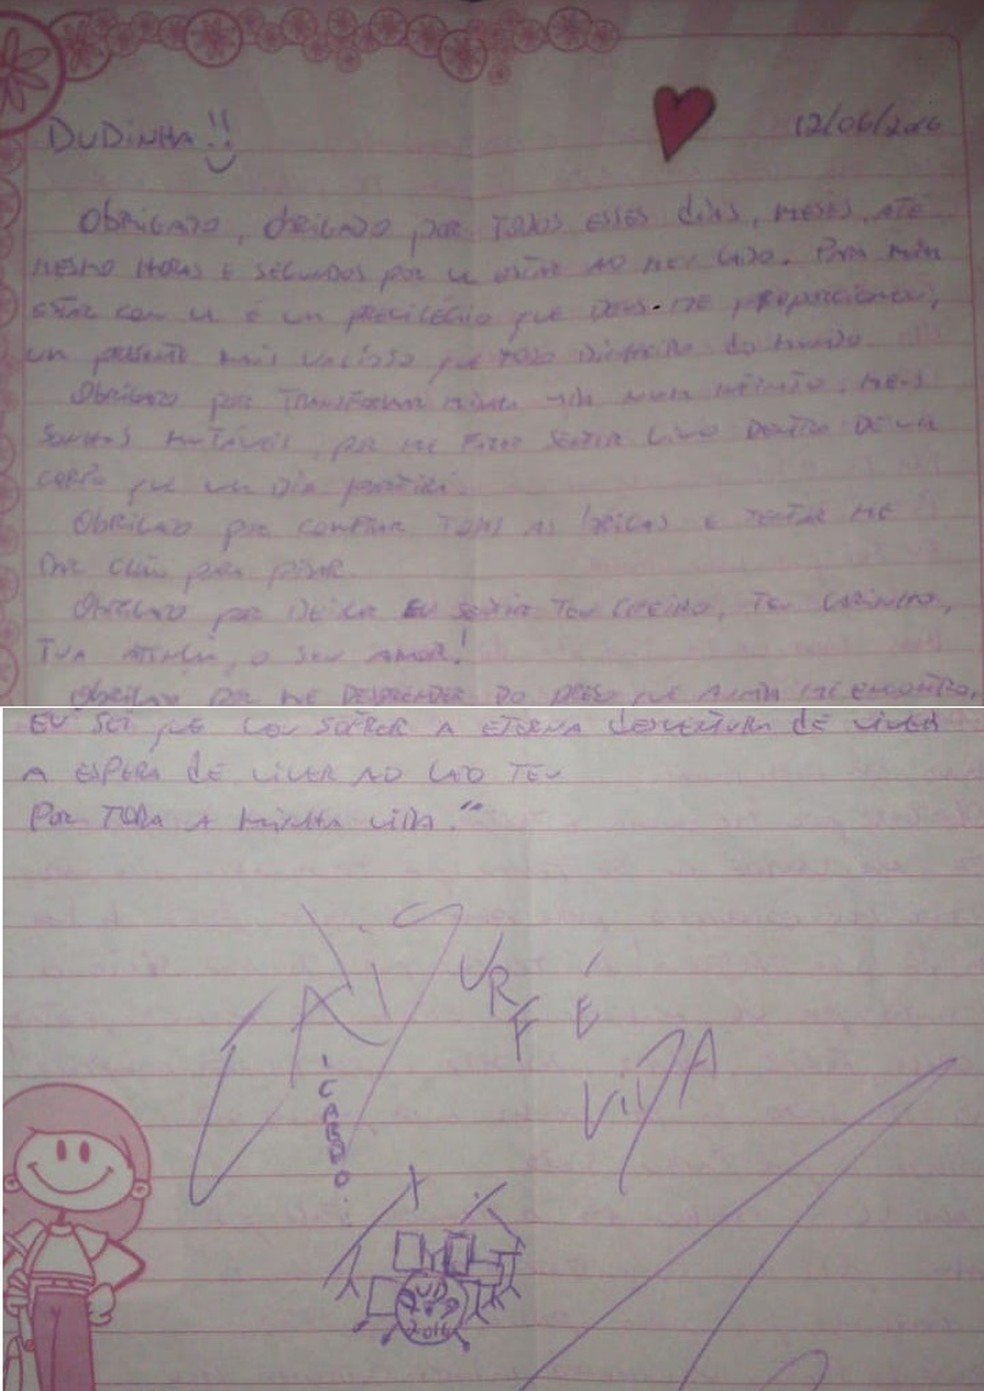 DUDINHA!!
12/06/2016
OBRIGADO, OBRIGADO POR TODOS ESSES DIAS, MESES, ATÉ
MESMO HORAS E SEGUNDOS POR VC ESTAR AO MEU LADO. PARA MIM
ESTAR COM VC É UM PRIVILÉGIO QUE DEUS ME PROPORCIONOU,
UM PRESENTE MAIS VALIOSO QUE TODO DINHEIRO DO MUNDO
OBRIGADO POR TRANSFORMAR MINHA VIDA NUM INFINITO, MEUS
SONHOS MUTÁVEIS, POR ME FAZER SENTIR VIVO DENTRO DE UM
CORPO QUE UM DIA PARTIRÁ.
OBRIGADO POR COMPRAR TODAS AS BRIGAS E TENTAR ME
DAR CHÃO PARA PISAR.
OBRIGADO POR DEIXAR EU SENTIR TEU CHEIRO, TEU CARINHO,
TUA ATENÇÃO, O SEU AMOR!
OBRIGADO POR ME DESPRENDER DO QUE ME ENCONTRO,
EU SEI QUE VOU SOFRER A ETERNA DESVENTURA DE VIVER
A ESPERA DE VIVER AO LADO TEU
POR TODA A MINHA VIDA."
URF
É
VIDA
2016